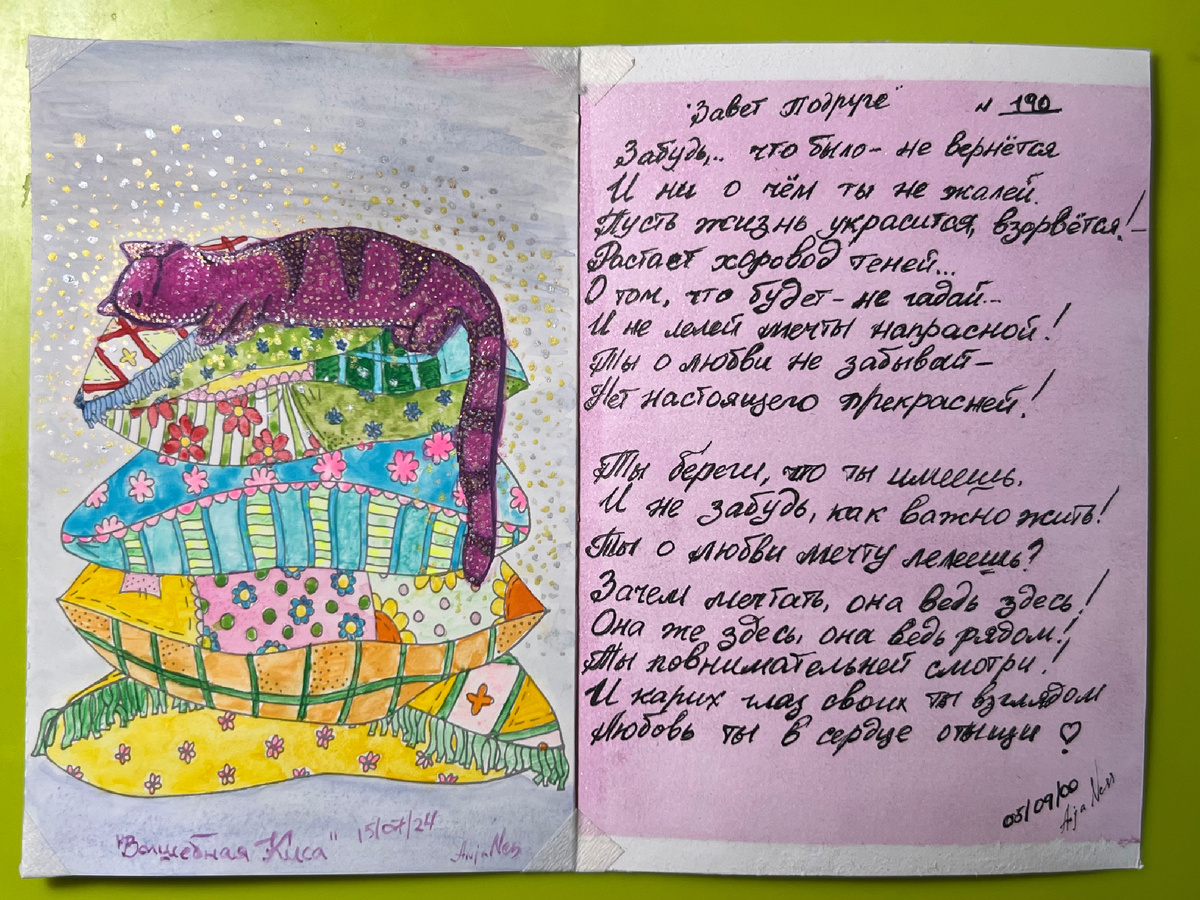 "Волшебная Киса" 15/07/24
Anja Ness
"Завет Подруге" N 190
Забудь,.. что было - не вернётся
И ни о чём ты не жалей.
Пусть жизнь украсится, взорвётся! -
Растает хоровод теней...
О том, что будет - не гадай -
И не лелей мечты напрасной!
Ты о любви не забывай -
Нет настоящего прекрасней!
Ты береги, что ты имеешь.
И не забудь, как важно жить!
Ты о любви мечту лелеешь?
Зачем мечтать, она ведь здесь!
Она же здесь, она ведь рядом!
Ты повнимательней смотри!
И карих глаз своих ты взглядом
Любовь ты в сердце отыщи ♡
05/09/00
Anja Ness